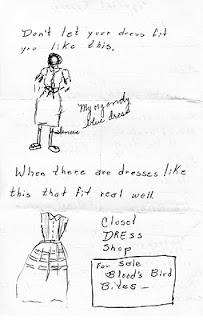 Don't let your dress fit
you like this,
"My organdy
blue dress
When there are dresses like
this that fit real well.
Closet
DRESS
Shop
For Sale
Blood's Bird
Bites —